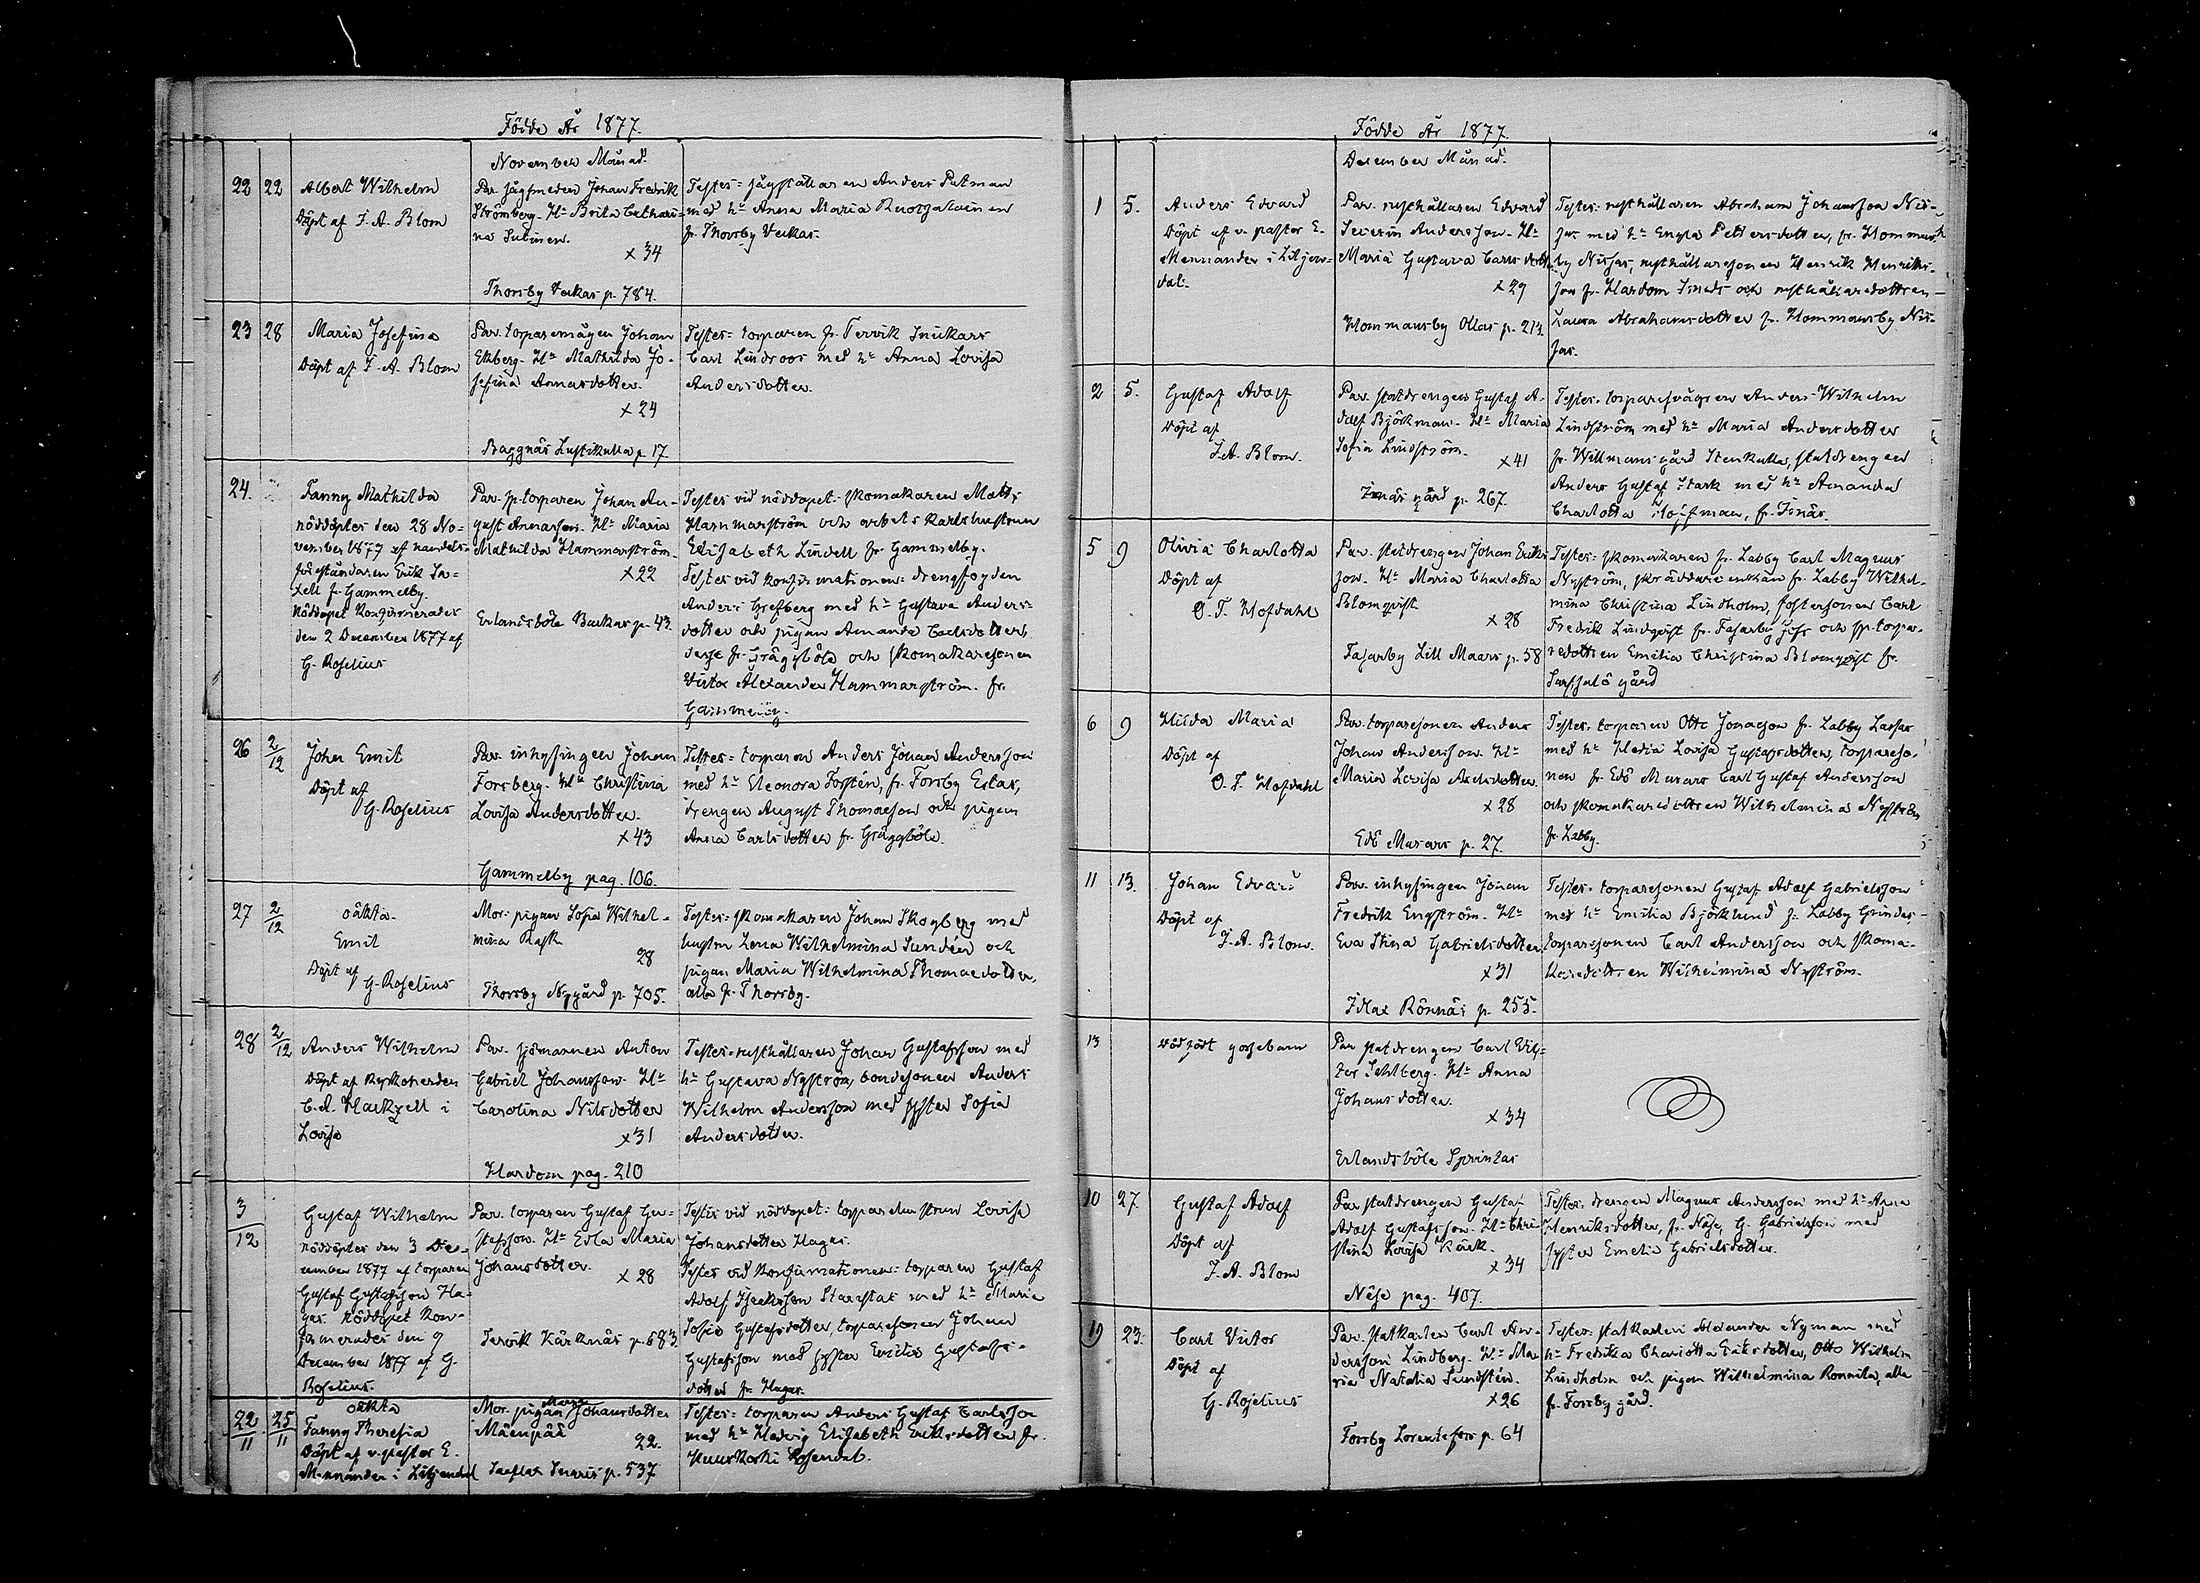 Födde År 1877.
November Månad.
22 22 Albert Wilhelm
Döpt af J. A. Blom
Par. sågsmeden Johan Fredrik
Strömberg. H:u Brita Cathari-
na Sutinen.
x 34
Thorsby Veckas p. 784.
Testes: sågställaren Anders Putman
med h:u Anna Maria Ruotzalainen
fr. Thorsby Veckas.
23 28 Maria Josefina
Döpt af J. A. Blom
Par. torparemågen Johan
Ekberg. H:u Mathilda Jo-
sefina Annasdotter.
x 24
Baggnäs Lustikulla p. 17.
Testes: torparen fr. Tervik Snickars
Carl Lindroos med h:u Anna Lovisa
Andersdotter.
24. Fanny Mathilda
nöddöptes den 28 No-
vember 1877 af handels-
föreståndaren Erik
fr. Gammelby.
Nöddopet konfirmerades
den 2 December 1877 af
G. Roselius
Par. sp. torparen Johan Au-
gust Annasson. H:u Maria
Mathilda Hammarström.
x 22
Erlandsböle Backas p. 43.
Testes vid nöddopet: skomakaren Matts
Hammarström och arbetskarlshustrun
Elisabeth Lindell fr. Gammelby.
Testes vid konfirmationen: drengfogden
Anders Grefberg med h:u Gustava Anders-
dotter och pigan Amanda Carlsdotter,
desse fr. Gräggböle och skomakaresonen
Victor Alexander Hammarström fr.
Gammelby.
26 2/12 John Emil
Döpt af
G. Roselius
Par. inhysingen Johan
Forsberg. H:u Christina
Lovisa Andersdotter.
x 43
Gammelby pag. 106.
Testes: torparen Anders Johan Andersson
med h:u Eleonora Forstén, fr. Forsby Eskas,
drengen August Thomasson och pigan
Anna Carlsdotter fr. Gräggböle.
27 2/12 oäkta
Emil
Döpt af
G. Roselius
Mor. pigan Sofia Wilhel-
mina Rask
28
Thorsby Nygård p. 705.
Testes: skomakaren Johan Skogberg med
hustru Lena Wilhelmina Sundén och
pigan Maria Wilhelmina Thomasdotter,
alla fr. Thorsby.
28 2/12 Anders Wilhelm
Döpt af Kyrkoherden
C. A. Harkzell i
Lovisa
Par. sjömannen Anton
Gabriel Johansson. H:u
Carolina Nilsdotter
x 31
Hardom pag. 210
Testes: rusthållaren Johan Gustafsson med
h:u Gustava Nyström, bondesonen Anders
Wilhelm Andersson med syster Sofia
Andersdotter.
3/12 Gustaf Wilhelm
nöddöptes den 3 De-
cember 1877 af torparen
Gustaf Gustafsson Ha-
gas. Nöddopet kon-
firmerades den 9
December 1877 af G.
Roselius.
Par. torparen Gustaf Gu-
stafsson. H:u Edla Maria
Johansdotter.
x 28
Tervik Kärknäs p. 683
Testes vid nöddopet: torparehustrun Lovisa
Johansdotter Hagas.
Testes vid konfirmationen: torparen Gustaf
Adolf Isacksson med h:u Maria
Sofia Gustafsdotter, torparesonen Johan
Gustafsson med syster Gustafs-
dotter fr. Hagas.
22/11 25/11 oäkta
Fanny Theresia
Döpt af v. pastor E.
Mennander i Liljendal
Mor. pigan Maria Johansdotter
Mäenpää
22.
p. 537
Testes: torparen Anders Gustaf Carlsson
med h:u Hedvig Elisabeth Eriksdotter fr.
Kuuskoski Rosendal.
Födde År 1877.
December Månad.
1 5. Anders Edvard
Döpt af v. pastor E.
Mennander i Liljen-
dal.
Par. rusthållaren Edvard
Severin Andersson. H:u
Maria Gustava Carlsdotter
x 29
Hommansby Ollas p. 214.
Testes: rusthållaren Abraham Johansson Nis-
sas med h:u Engla Pettersdotter, fr. Hommans-
by Nissas, rusthållaresonen Henrik Henriks-
son fr. Hardom Smeds och rusthållaredottren
Laura Abrahamsdotter fr. Hommansby Nis-
sas.
2 5. Gustaf Adolf
Döpt af
J. A. Blom.
Par. statdrengen Gustaf A-
dolf Björkman. H:u Maria
Sofia Lindström.
x 41
Isnäs gård p. 267.
Testes: torparesvågern Anders Wilhelm
Lindström med h:u Maria Andersdotter
fr. Willmansgård Stenkulla, statdrengen
Anders Gustaf Stark med h:u Amanda
Charlotta Hoffman, fr. Isnäs.
5 9 Olivia Charlotta
Döpt af
O. F. Hofdahl
Par. statdrengen Johan Eriks-
son. H:u Maria Charlotta
Blomqvist.
x 28
Fasarby Lill Maars p. 58
Testes: skomakaren fr. Labby Carl Magnus
Nyström, skräddareenkan fr. Labby Wilhel-
mina Christina Lindholm, fostersonen Carl
Fredrik Lindqvist fr. Fasarby Joss och sp. torpa-
redottren Emilia Christina Blomqvist fr.
Sarfsalö gård
6 9 Hilda Maria
Döpt af
O. F. Hofdahl
Par. torparesonen Anders
Johan Andersson. H:u
Maria Lovisa Axelsdotter.
x 28
Edö Masars p. 27.
Testes: torparen Otto Jonasson fr. Labby Lassas
med h:u Hedda Lovisa Gustafsdotter, torpareso-
nen fr. Edö Masars Carl Gustaf Andersson
och skomakaredottren Wilhelmina Nyström
fr. Labby.
11 13. Johan Edvard
Döpt af
J. A. Blom.
Par. inhysingen Johan
Fredrik Engström. H:u
Eva Stina Gabrielsdotter
x 31
Idlax Rönnäs p. 255.
Testes: torparesonen Gustaf Adolf Gabrielsson
med h:u Emilia Björklund fr. Labby Grindas,
torparesonen Carl Andersson och skoma-
karedottren Wilhelmina Nyström.
13 dödfödt gossebarn
Par. statdrengen Carl Vik-
tor Sahlberg. H:u Anna
Johansdotter.
x 34
Erlandsböle Sprintas
10 27. Gustaf Adolf
Döpt af
J. A. Blom
Par. statdrengen Gustaf
Adolf Gustafsson. H:u Chri-
stina Lovisa Käck.
x 34
Näse pag. 407.
Testes: drengen Magnus Andersson med h:u Anna
Henriksdotter, fr. Näse, G. Gabrielsson med
syster Emelie Gabrielsdotter.
19 23. Carl Victor
Döpt af
G. Roselius
Par. statkarlen Carl An-
dersson Lindberg. H:u Ma-
ria Natalia Sundstén.
x 26
Forsby Lorentsfors p. 64
Testes: statkarlen Alexander Nyman med
h:u Fredrika Charlotta Eriksdotter, Otto Wilhelm
Lindholm och pigan Wilhelmina Ronnila, alla
fr. Forsby gård.